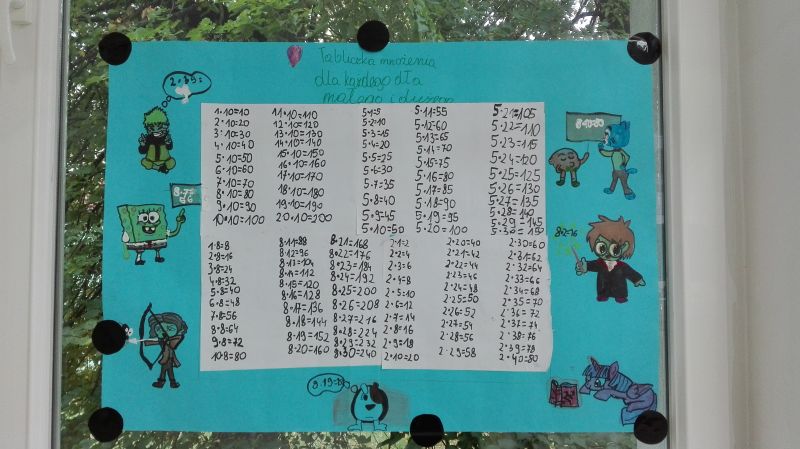 Tabliczka mnożenia
dla każdego dla
małego i dużego
1·10=10
2·10=20
3·10=30
4·10=40
5·10=50
6·10=60
7·10=70
8·10=80
9·10=90
10·10=100
11·10=110
12·10=120
13·10=130
14·10=140
15·10=150
16·10=160
17·10=170
18·10=180
19·10=190
20·10=200
5·1=5
5·2=10
5·3=15
5·4=20
5·5=25
5·6=30
5·7=35
5·8=40
5·9=45
5·10=50
5·11=55
5·12=60
5·13=65
5·14=70
5·15=75
5·16=80
5·17=85
5·18=90
5·19=95
5·20=100
5·21=105
5·22=110
5·23=115
5·24=120
5·25=125
5·26=130
5·27=135
5·28=140
5·29=145
5·30=150
1·8=8
2·8=16
3·8=24
4·8=32
5·8=40
6·8=48
7·8=56
8·8=64
9·8=72
10·8=80
8·11=88
8·12=96
8·13=104
8·14=112
8·15=120
8·16=128
8·17=136
8·18=144
8·19=152
8·20=160
8·21=168
8·22=176
8·23=184
8·24=192
8·25=200
8·26=208
8·27=216
8·28=224
8·29=232
8·30=240
2·1=2
2·2=4
2·3=6
2·4=8
2·5=10
2·6=12
2·7=14
2·8=16
2·9=18
2·10=20
2·20=40
2·21=42
2·22=44
2·23=46
2·24=48
2·25=50
2·26=52
2·27=54
2·28=56
2·29=58
2·30=60
2·31=62
2·32=64
2·33=66
2·34=68
2·35=70
2·36=72
2·37=74
2·38=76
2·39=78
2·40=80
8·2=16